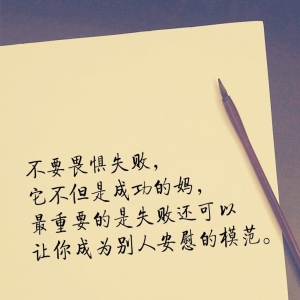 不要畏惧失败，
它不但是成功的妈，
最重要的是失败还可以
让你成为别人安慰的模范。